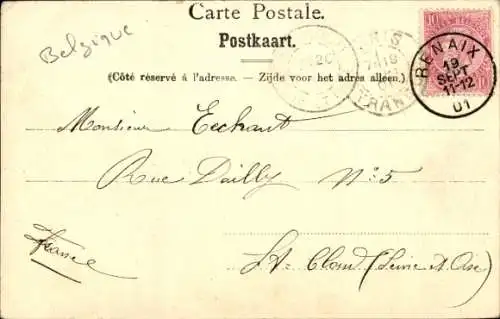 Carte Postale.
Belgique
Postkaart.
(Côté réservé à l'adresse. - Zijde voor het adres alleen.)
10
RENAIX
19
SEPT
11-12
01
PARIS
ETRANGER
Monsieur Eeckhaut
Rue Dailly N° 5
France
St-Cloud (Seine et Oise)